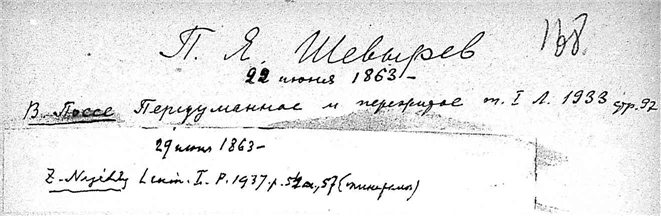 П. Я. Шевырев 168
22 июня 1863 –
В. Поссе Передуманное и пережитое т. I Л. 1933 стр. 92
29 июня 1863 –
Z. Nejedly Lenin. I. P. 1937. p. 57 (